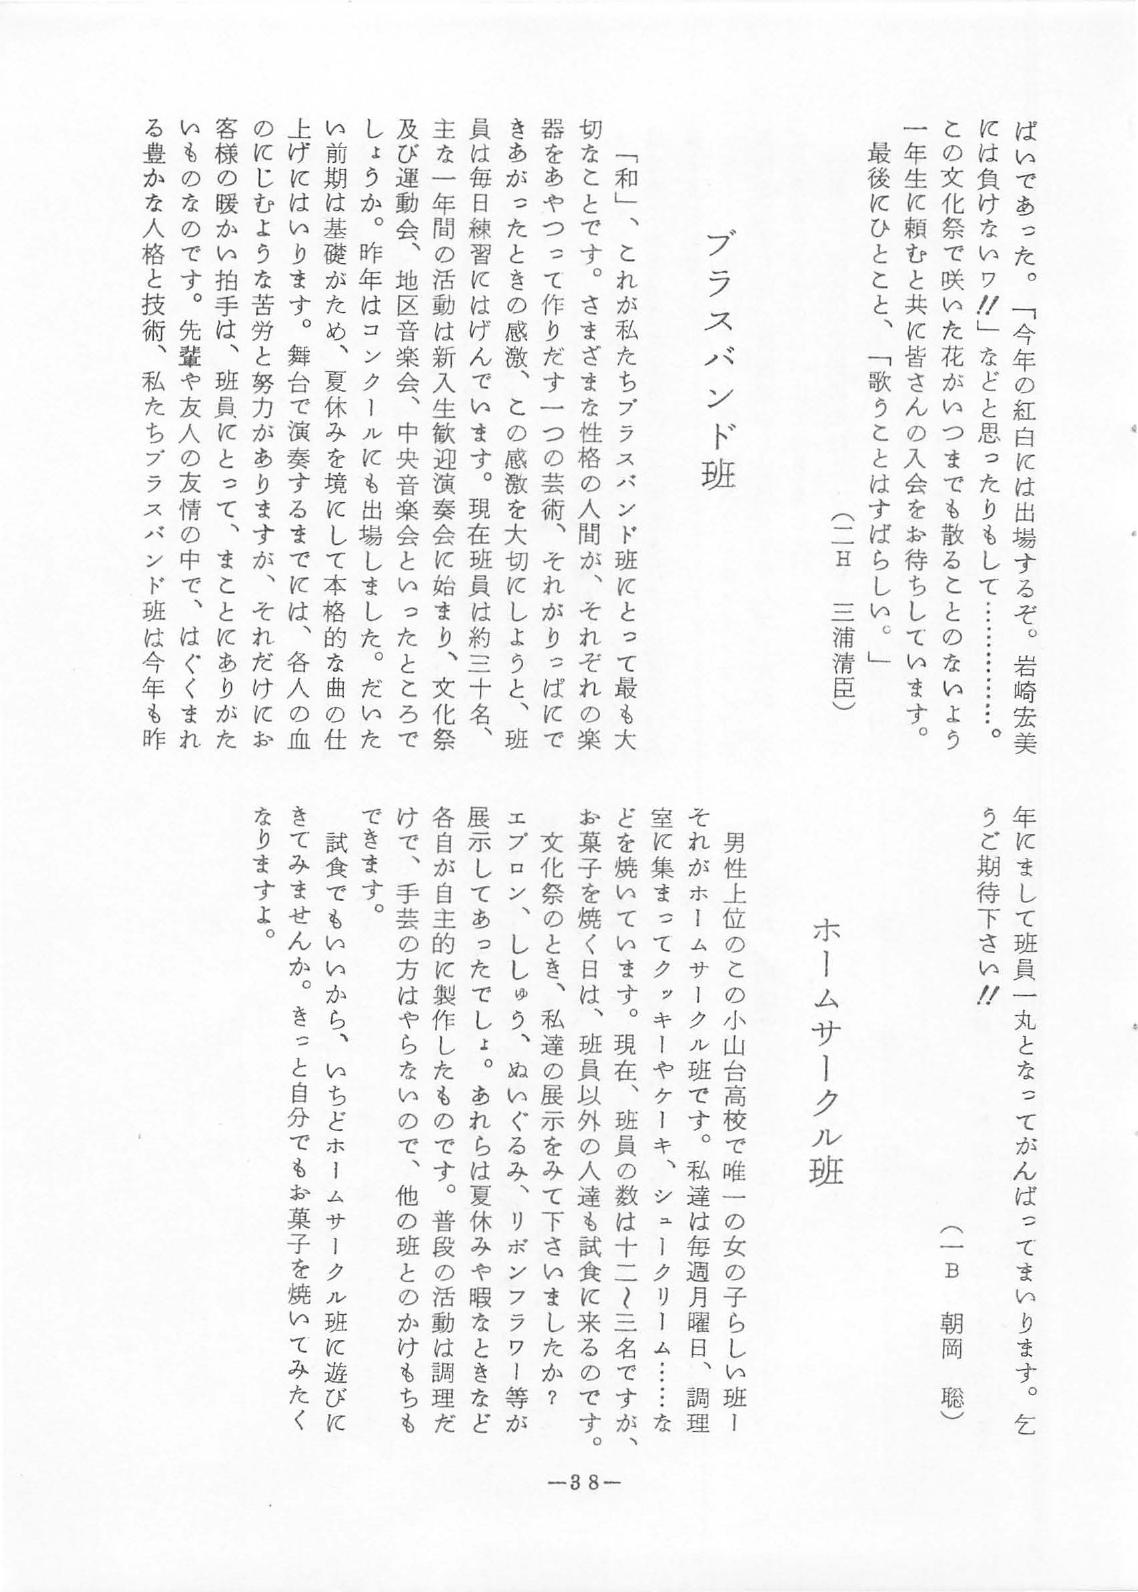 ばいであった。「今年の紅白には出場するぞ。岩崎宏美
には負けないワ!!」などと思ったりもして……………。
この文化祭で咲いた花がいつまでも散ることのないよう
一年生に頼むと共に皆さんの入会をお待ちしています。
最後にひとこと、「歌うことはすばらしい。」
（二H　三浦清臣）
ブラスバンド班
「和」、これが私たちブラスバンド班にとって最も大
切なことです。さまざまな性格の人間が、それぞれの楽
器をあやつって作りだす一つの芸術、それがりっぱにで
きあがったときの感激、この感激を大切にしようと、班
員は毎日練習にはげんでいます。現在班員は約三十名、
主な一年間の活動は新入生歓迎演奏会に始まり、文化祭
及び運動会、地区音楽会、中央音楽会といったところで
しょうか。昨年はコンクールにも出場しました。だいた
い前期は基礎がため、夏休みを境にして本格的な曲の仕
上げにはいります。舞台で演奏するまでには、各人の血
のにじむような苦労と努力がありますが、それだけにお
客様の暖かい拍手は、班員にとって、まことにありがた
いものなのです。先輩や友人の友情の中で、はぐくまれ
る豊かな人格と技術、私たちブラスバンド班は今年も昨
年にまして班員一丸となってがんばってまいります。乞
うご期待下さい!!
（一B　朝岡　聡）
ホームサークル班
男性上位のこの小山台高校で唯一の女の子らしい班ー
それがホームサークル班です。私達は毎週月曜日、調理
室に集まってクッキーやケーキ、シュークリーム……な
どを焼いています。現在、班員の数は十二〜三名ですが、
お菓子を焼く日は、班員以外の人達も試食に来るのです。
文化祭のとき、私達の展示をみて下さいましたか？
エプロン、ししゅう、ぬいぐるみ、リボンフラワー等が
展示してあったでしょ。あれらは夏休みや暇なときなど
各自が自主的に製作したものです。普段の活動は調理だ
けで、手芸の方はやらないので、他の班とのかけもちも
できます。
試食でもいいから、いちどホームサークル班に遊びに
きてみませんか。きっと自分でもお菓子を焼いてみたく
なりますよ。
—38—